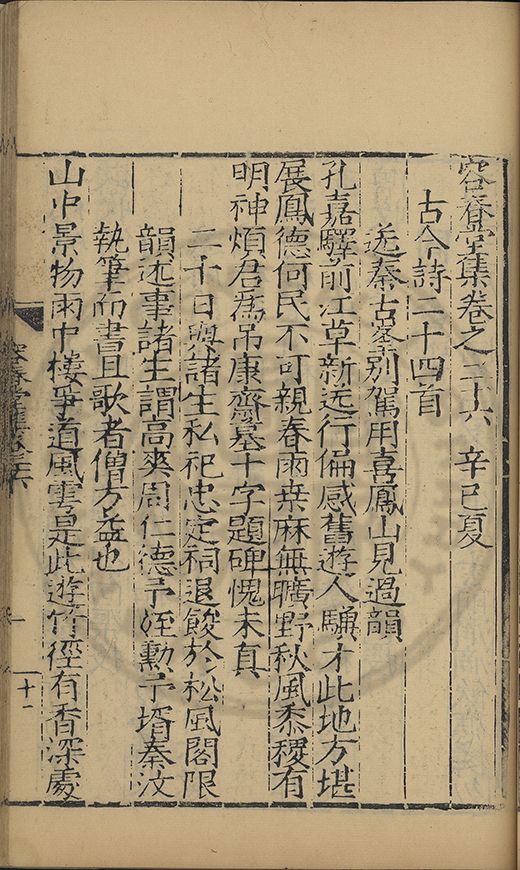 容春堂集卷之二十六 辛巳夏
古今詩二十四首
送秦古峯別駕用喜鳳山見過韻
孔嘉驛前江草新远行偏感舊遊人騑才此地方堪
展鳳德何民不可親春雨桑麻無曠野秋風黍稷有
明神煩君為吊康齋墓十字題碑愧未真
二十日與諸生私祀忠定祠退餕於松風閣限
韻述事諸生謂高奕周仁德予姪勳予壻秦汶
執筆而書且歌者僧方益也
山中景物雨中樓爭道風雩是此遊竹徑有香深處
容春堂集卷六
十一